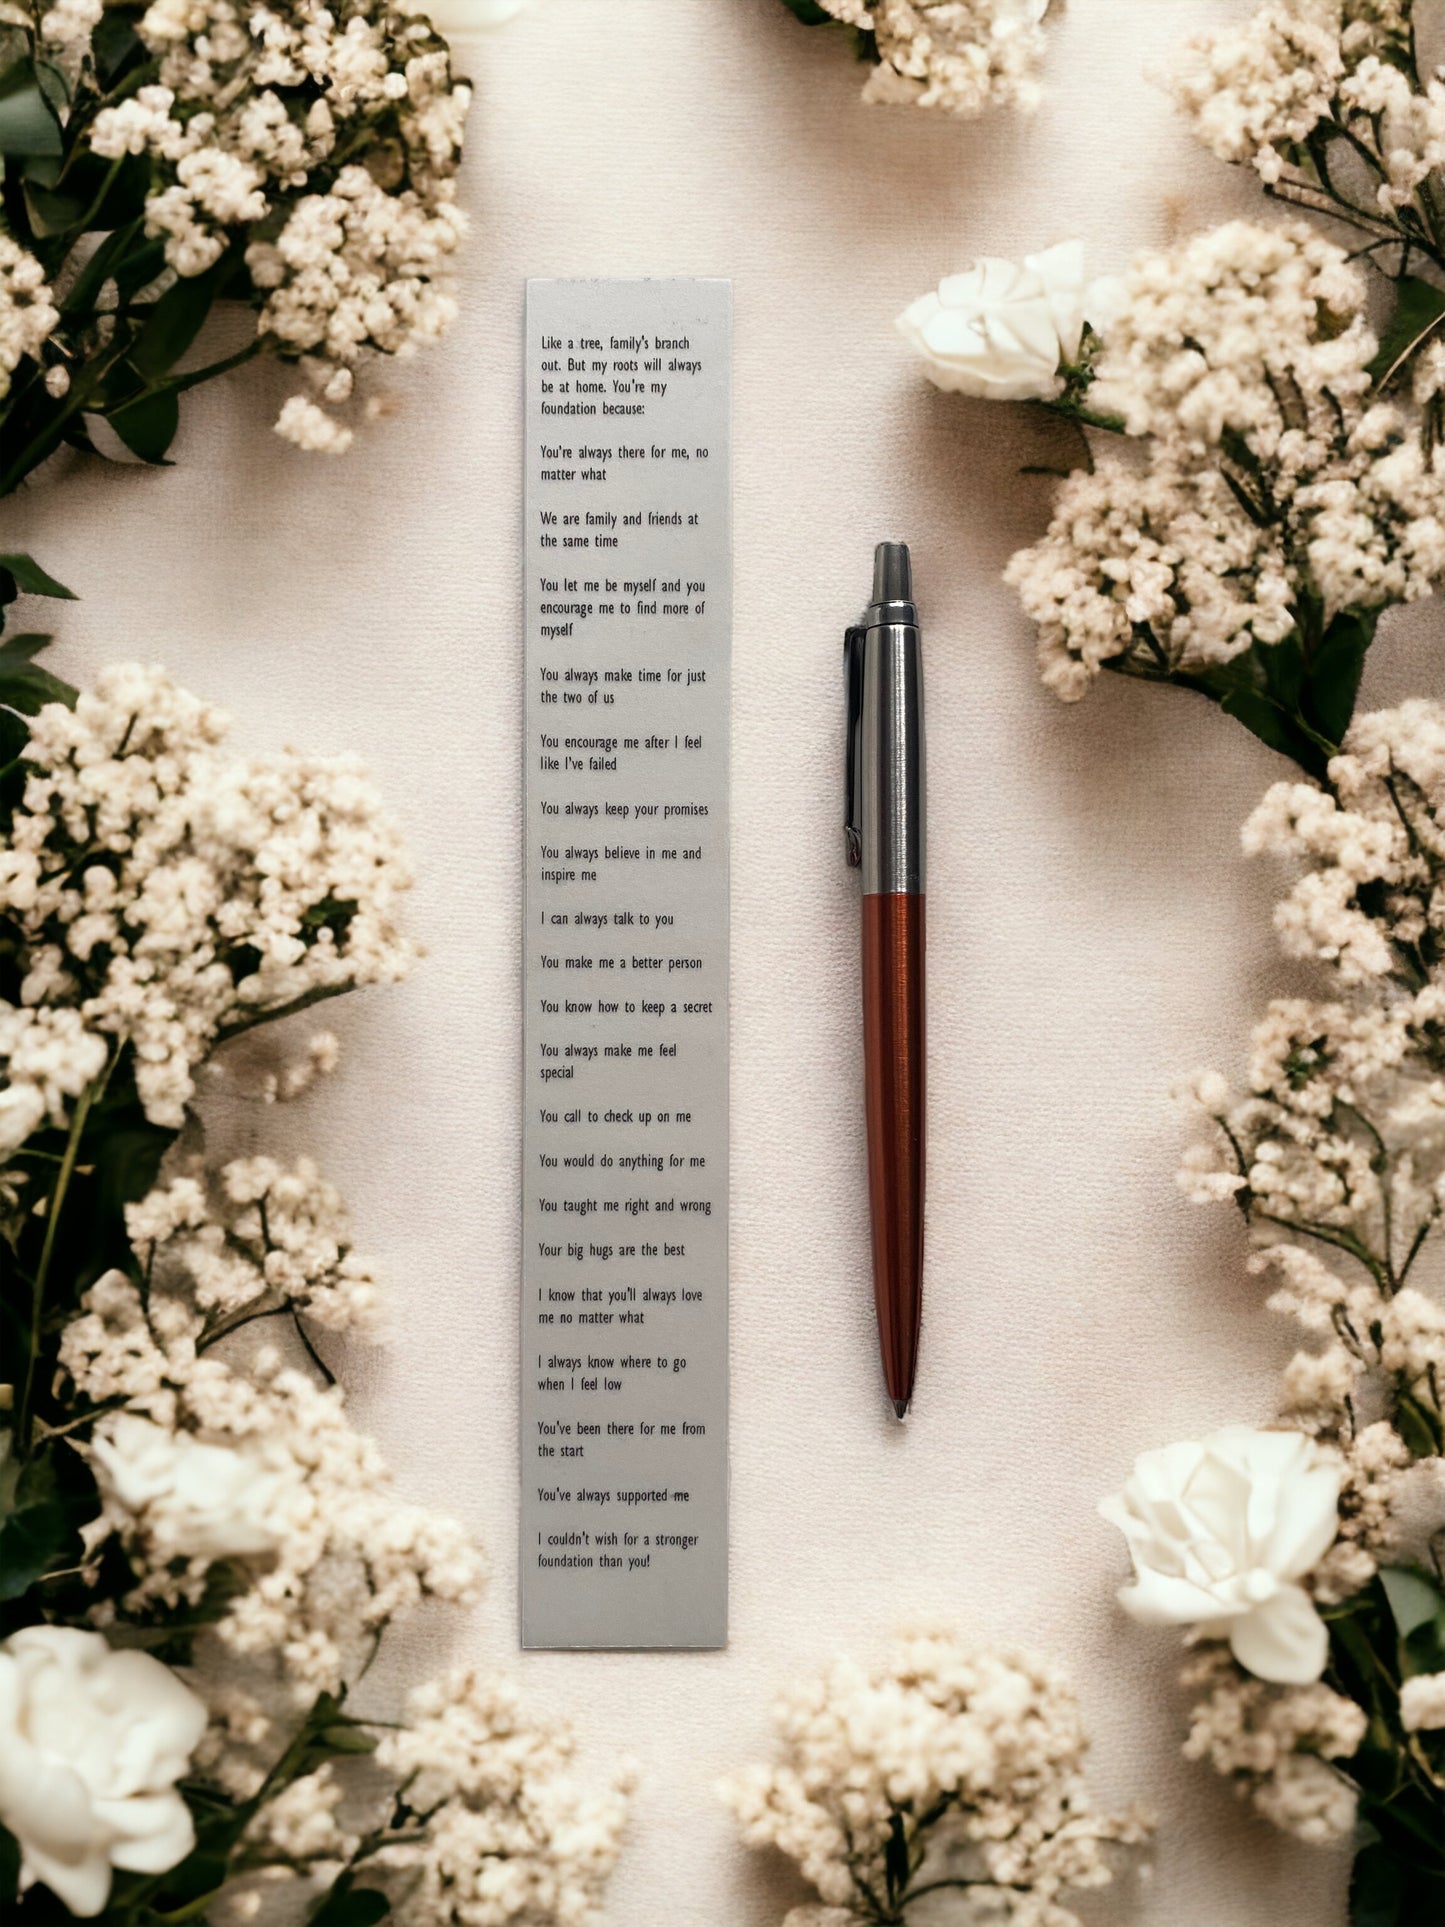 Like a tree, family's branch
out. But my roots will always
be at home. You're my
foundation because:
You're always there for me, no
matter what
We are family and friends at
the same time
You let me be myself and you
encourage me to find more of
myself
You always make time for just
the two of us
You encourage me after I feel
like I've failed
You always keep your promises
You always believe in me and
inspire me
I can always talk to you
You make me a better person
You know how to keep a secret
You always make me feel
special
You call to check up on me
You would do anything for me
You taught me right and wrong
Your big hugs are the best
I know that you'll always love
me no matter what
I always know where to go
when I feel low
You've been there for me from
the start
You've always supported me
I couldn't wish for a stronger
foundation than you!